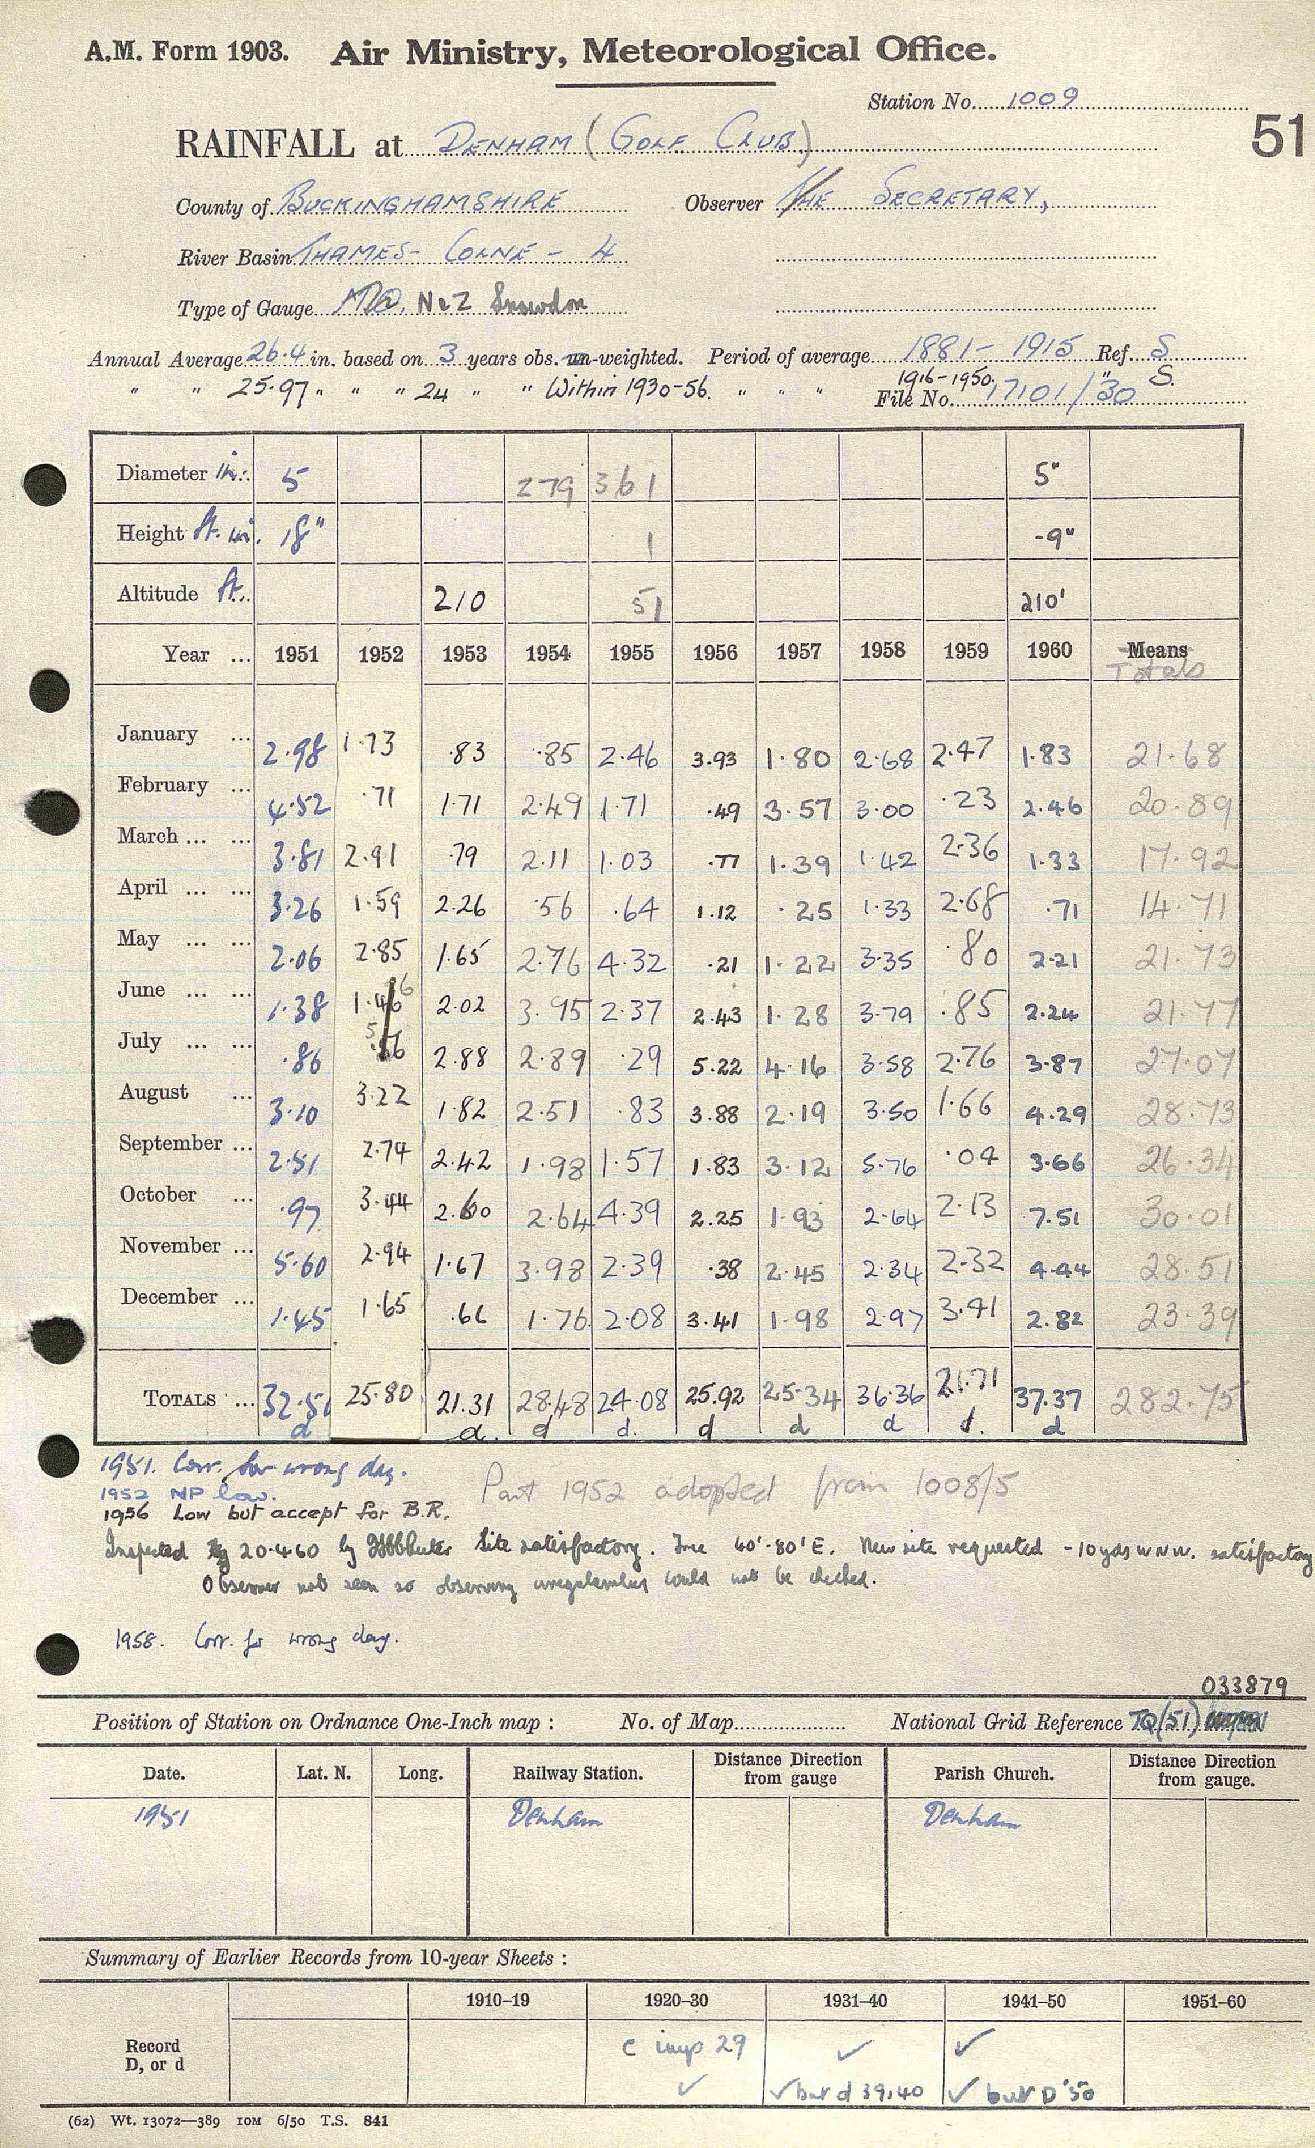 A.M. Form 1903. Air Ministry, Meteorological Office.
Station No. 1009
51
RAINFALL at DENHAM (GOLF CLUB)
County of BUCKINGHAMSHIRE Observer THE SECRETARY,
River Basin THAMES - COLNE - 4
Type of Gauge MO. No 2 Snowdon
Annual Average 26.4 in. based on 3 years obs. un-weighted. Period of average 1881 - 1915 Ref. S
" " 25.97 " " " 24 " " Within 1930-56. " " " 1916-1950 " S.
File No. 17101/30
Diameter in. 5 279 361 5"
Height ft. in. 18" 1 -9"
Altitude ft. 210 51 210'
Year ... 1951 1952 1953 1954 1955 1956 1957 1958 1959 1960 Means
Totals
January ... 2.98 1.73 .83 .85 2.46 3.93 1.80 2.68 2.47 1.83 21.68
February ... 4.52 .71 1.71 2.49 1.71 .49 3.57 3.00 .23 2.46 20.89
March ... ... 3.81 2.91 .79 2.11 1.03 .77 1.39 1.42 2.36 1.33 17.92
April ... ... 3.26 1.59 2.26 .56 .64 1.12 .25 1.33 2.68 .71 14.71
May ... ... 2.06 2.85 1.65 2.76 4.32 .21 1.22 3.35 .80 2.21 21.73
June ... ... 1.38 1.46 2.02 3.95 2.37 2.43 1.28 3.79 .85 2.24 21.77
July ... ... .86 .56 2.88 2.89 .29 5.22 4.16 3.58 2.76 3.87 27.07
August ... 3.10 3.22 1.82 2.51 .83 3.88 2.19 3.50 1.66 4.29 28.73
September ... 2.51 2.74 2.42 1.98 1.57 1.83 3.12 5.76 .04 3.66 26.34
October ... .97 3.44 2.60 2.64 4.39 2.25 1.93 2.64 2.13 7.51 30.01
November ... 5.60 2.94 1.67 3.98 2.39 .38 2.45 2.34 2.32 4.44 28.51
December ... 1.45 1.65 .66 1.76 2.08 3.41 1.98 2.97 3.41 2.82 23.39
TOTALS ... 32.51 25.80 21.31 28.48 24.08 25.92 25.34 36.36 21.71 37.37 282.75
d d. d d. d d d d. d
1951. Corr. for wrong day.
1952 NP low. Part 1952 adopted from 1008/5
1956 Low but accept for B.R.
Inspected 20.4.60 by Site satisfactory. Tree 60'-80' E. New site requested -10 yds W.N.W. satisfactory
Observer not seen so observing irregularities could not be checked.
1958. Corr. for wrong day.
033879
Position of Station on Ordnance One-Inch map : No. of Map National Grid Reference TQ(51)
Date. Lat. N. Long. Railway Station. Distance Direction from gauge Parish Church. Distance Direction from gauge.
1951 Denham Denham
Summary of Earlier Records from 10-year Sheets :
1910-19 1920-30 1931-40 1941-50 1951-60
Record D, or d
c imp 29 ✓ ✓
✓ ✓ but d 39,40 ✓ but D '50
(62) Wt. 13072—389 10M 6/50 T.S. 841